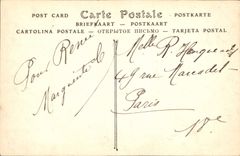 POST CARD Carte Postale POSTKARTE
BRIEFKAART — POSTKAART
CARTOLINA POSTALE — ОТКРЫТОЕ ПИСЬМО — TARJETA POSTAL
Pour Renée
Marguerite
Melle R.
49 rue Marcadet
Paris
18e